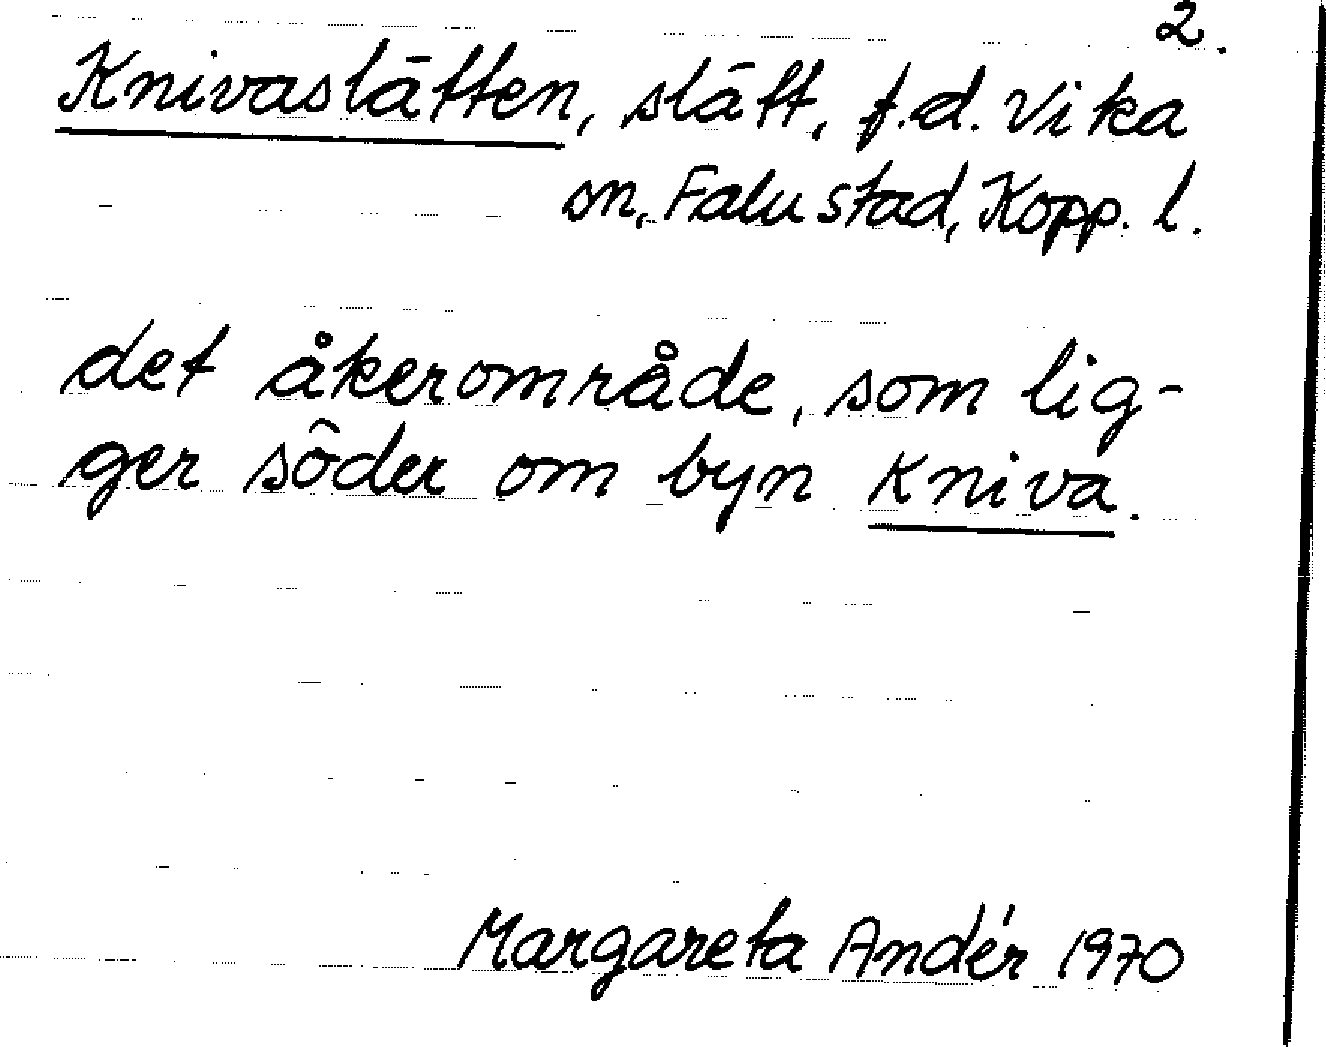 2.
Knivaslätten, slätt, f.d. Vika
sn, Falu stad, Kopp. l.
det åkerområde, som lig-
ger söder om byn Kniva.
Margareta Andér 1970